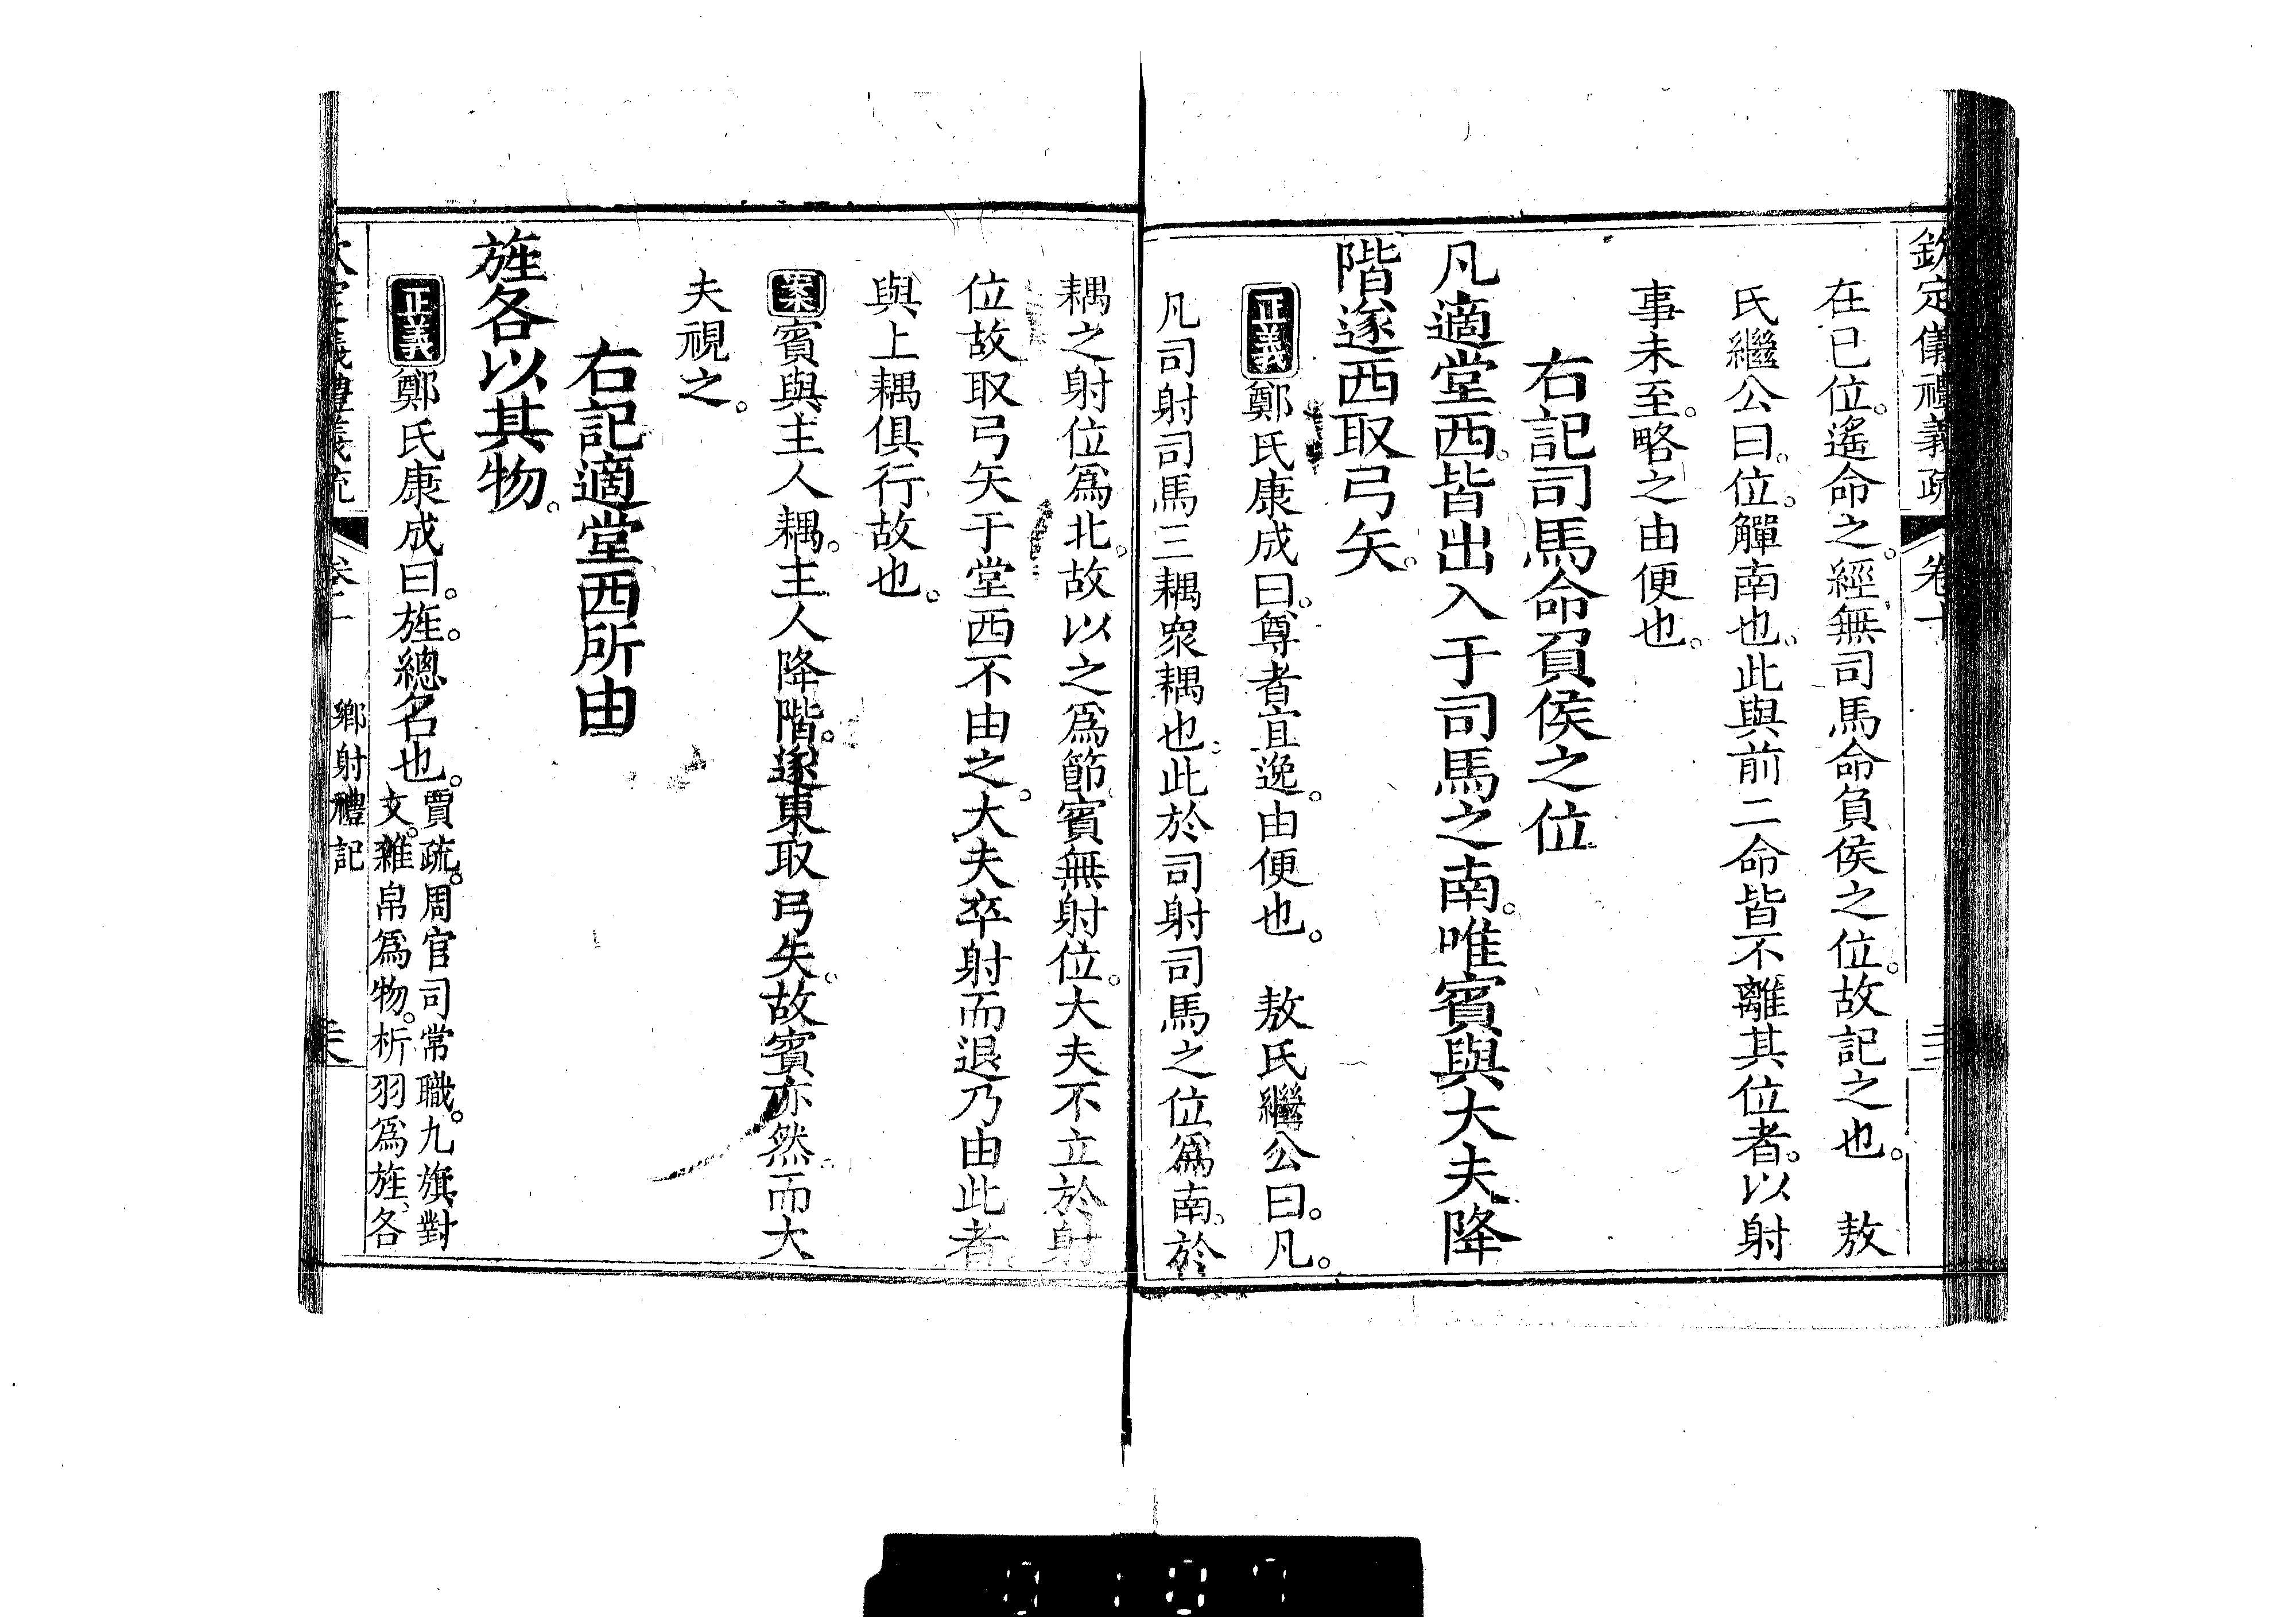 欽定儀禮義疏 卷十
在已位。遙命之。經無司馬命負侯之位。故記之也。 敖
氏繼公曰。位。觶南也。此與前二命皆不離其位者。以射
事未至。略之由便也。
右記司馬命負侯之位
凡適堂西。皆出入于司馬之南。唯賓與大夫降
階遂西取弓矢。
正義鄭氏康成曰。尊者宜逸。由便也。 敖氏繼公曰。凡。
凡司射司馬三耦衆耦也。此於司射司馬之位爲南。於
耦之射位爲北。故以之爲節。賓無射位。大夫不立於射
位。故取弓矢于堂西不由之。大夫卒射而退乃由此者。
與上耦俱行故也。
案賓與主人耦。主人降階。遂東取弓矢。故賓亦然。而大
夫視之。
右記適堂西所由
旌各以其物。
正義鄭氏康成曰。旌。總名也。
賈疏。周官司常職。九旗對
文。雜帛爲物。析羽爲旌。各
鄉射禮記